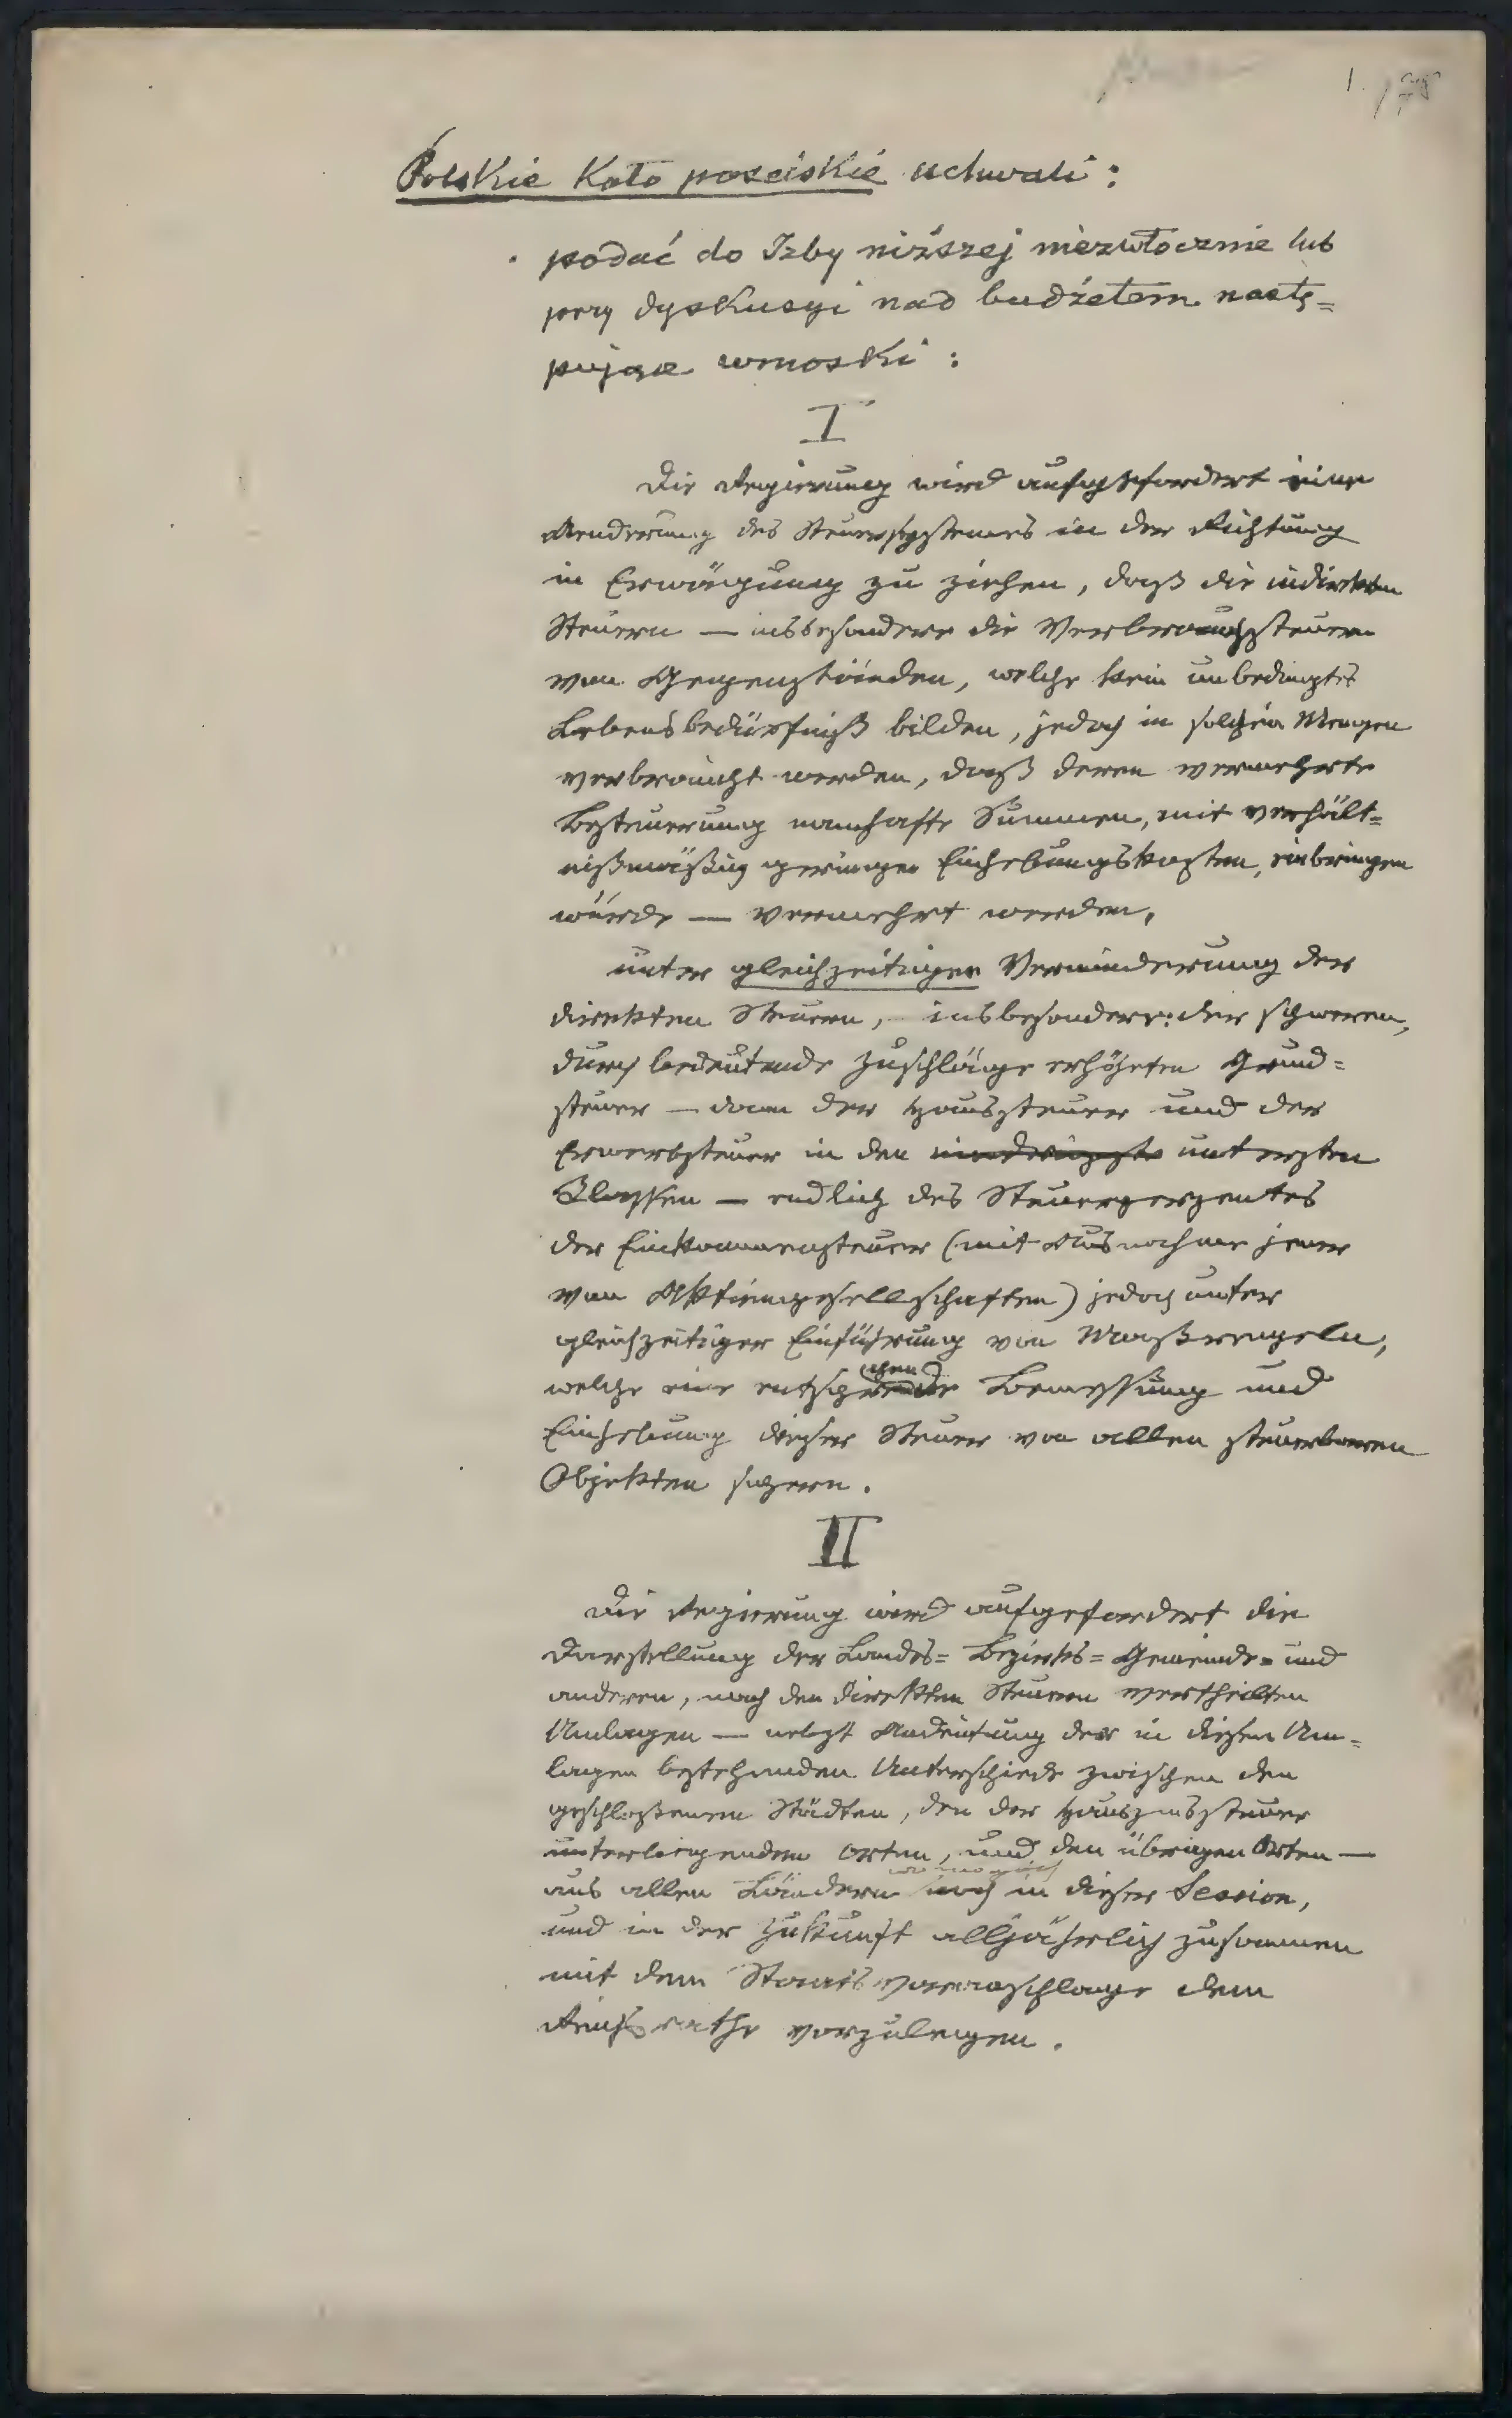 1.
Polskie Koło poselskie uchwali:
podać do Izby niższej niezwłocznie lub
przy dyskusyi nad budżetem nastę=
pujące wnioski:
I
Die Regierung wird aufgefordert eine
Aenderung des Steuersystemes in der Richtung
in Erwägung zu ziehen, daß die indirekten
Steuern — insbesondere die Verbrauchssteuern
von Gegenständen, welche kein unbedingtes
Lebensbedürfniß bilden, jedoch in solchen Mengen
verbraucht werden, daß deren vermehrte
Besteuerung namhafte Summen, mit verhält=
nißmäßig geringen Einhebungskosten, einbringen
würde — vermehrt werden,
unter gleichzeitiger Verminderung der
direkten Steuern, – insbesondere: der schweren,
durch bedeutende Zuschläge erhöhten Grund=
steuer — dann der Haussteuer und der
Erwerbsteuer in den untersten
Classen — endlich des Steuerperzentes
der Einkommensteuer (mit Ausnahme jener
von Aktiengesellschaften) jedoch unter
gleichzeitiger Einführung von Maaßregeln,
welche eine Bemessung und
Einhebung dieser Steuer von allen steuerbaren
Objekten sichern.
II
Die Regierung wird aufgefordert die
Darstellung der Landes= Bezirks= Gemeinde= und
anderen, nach den direkten Steuern vertheilten
Umlagen — nebst Andeutung der in diesen Um=
lagen bestehenden Unterschiede zwischen den
geschloßenen Städten, den der Hauszinssteuer
unterliegenden Orten, und den übrigen Orten —
aus allen Ländern wo möglich noch in dieser Session,
und in der Zukunft alljährlich zusammen
mit dem Staatsvoranschlage dem
Reichsrathe vorzulegen.